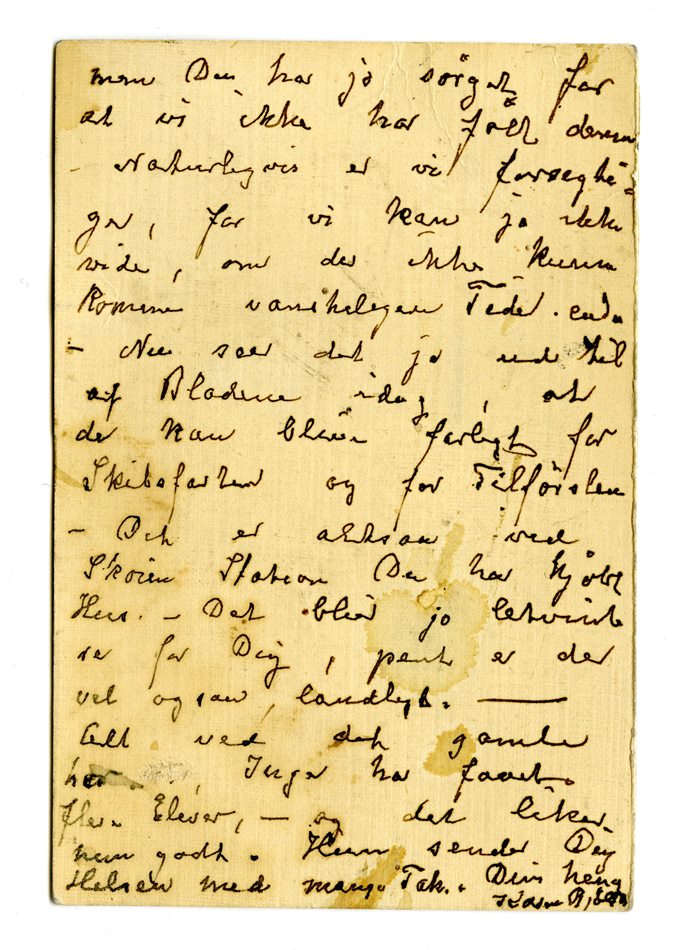 men Du har jo sörget for
at vi ikke har følt denne
- Naturligvis er vi forsegti-
ger, for vi kan jo ikke
vide, om der ikke kunne
komme vanskeligere Tider. endu
- Nu seer det jo ud til
af Bladene idag, at
de kan blive farligt for
Skibsfarten og for Tilförslen
- Det er altsaa ved
Skøien Station Du har kjøbt
Hus. - Det bliver jo letvindt
re for Dig, pent er der
vel ogsaa, landligt. -
Alt ved det gamle
her. Inger har faaet
flere Elever, - og det liker
hun godt. Hun sender Dig
Helsen med mange Tak. Din heng